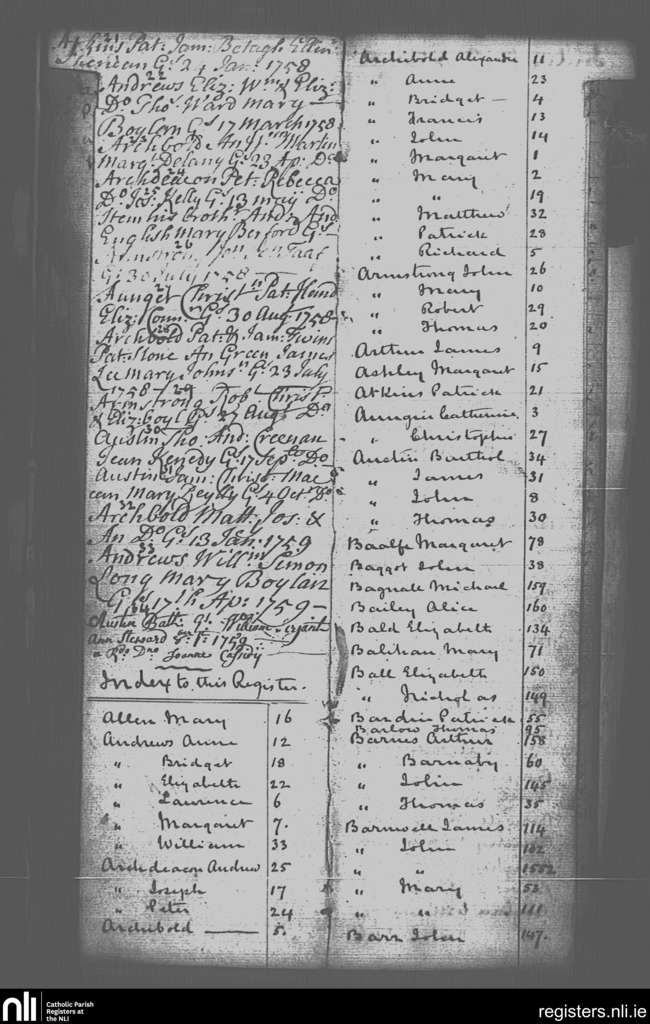 21
Atkins Pat: Jam: Betagh Ellin:
Gs: 24 Jan: 1758
22
Andrews Eliz: Wm & Eliz:
Do Tho: Ward mary
Boylan Gs 17 March 1758
23
Archbold An Js: Martin
Marg: Delany Gs 23 Ap: Do
24
Archdeacon Pet: Rebecca
25
Do Jos: Kelly Gs: 13 may Do
Item his broth: Andw And
English mary Berford Gs
26
Gs 30 July 1758
27
Aunger Christn Pat:
Eliz: Conn Gs 30 Aug: 1758
28
Archbold Pat: & Jam:
Pat: Slone An Green James
Lee mary Johnsn Gs 23 July
1758 29
Armstrong Rob: Christ:
& Eliz: boyl Gs 27 Aug: Do
30
Austin Tho: And: Creenan
Jean Kenedy Gs 17 Sep: Do
31
Austin Jam: Christ: Mac
ean Mary Reylly Gs 4 Oct: Do
32
Archbold Matt: Jos: &
An Do Gs 13 Jan: 1759
33
Andrews Willm Simon
Long mary Boylan
Gs 17th Ap: 1759
34
Austin Bath: Gs: William
Ann 1759
Joanne Cassidy
Index to this Register.
Allen Mary 16
Andrews Anne 12
" Bridget 18
" Elizabeth 22
" Laurence 6
" Margaret 7.
" William 33
Archdeacon Andrew 25
" Joseph 17
" Peter 24
Archibold — 5.
Archibold Alexander 11
" Anne 23
" Bridget — 4
" Francis 13
" John 14
" Margaret 1
" Mary 2
" " 19
" Matthew 32
" Patrick 28
" Richard 5
Armstrong John 26
" Mary 10
" Robert 29
" Thomas 20
Arthur James 9
Ashley Margaret 15
Atkins Patrick 21
Aungier Catherine 3
" Christopher 27
Austin Barthol 34
" James 31
" John 8
" Thomas 30
Baalfe Margaret 78
Baggot John 38
Bagnall Michael 159
Bailey Alice 160
Bald Elizabeth 134
Balihan Mary 71
Ball Elizabeth 150
" Nicholas 149
Bandrie Patrick 55
Barlow Thomas 95
Barnes Arthur 158
" Barnaby 60
" John 145
" Thomas 35
Barnwell James 114
" John 102
" "
" Mary 53
" " 111
Barr John 147.
nli
Catholic Parish
Registers at
the NLI
registers.nli.ie